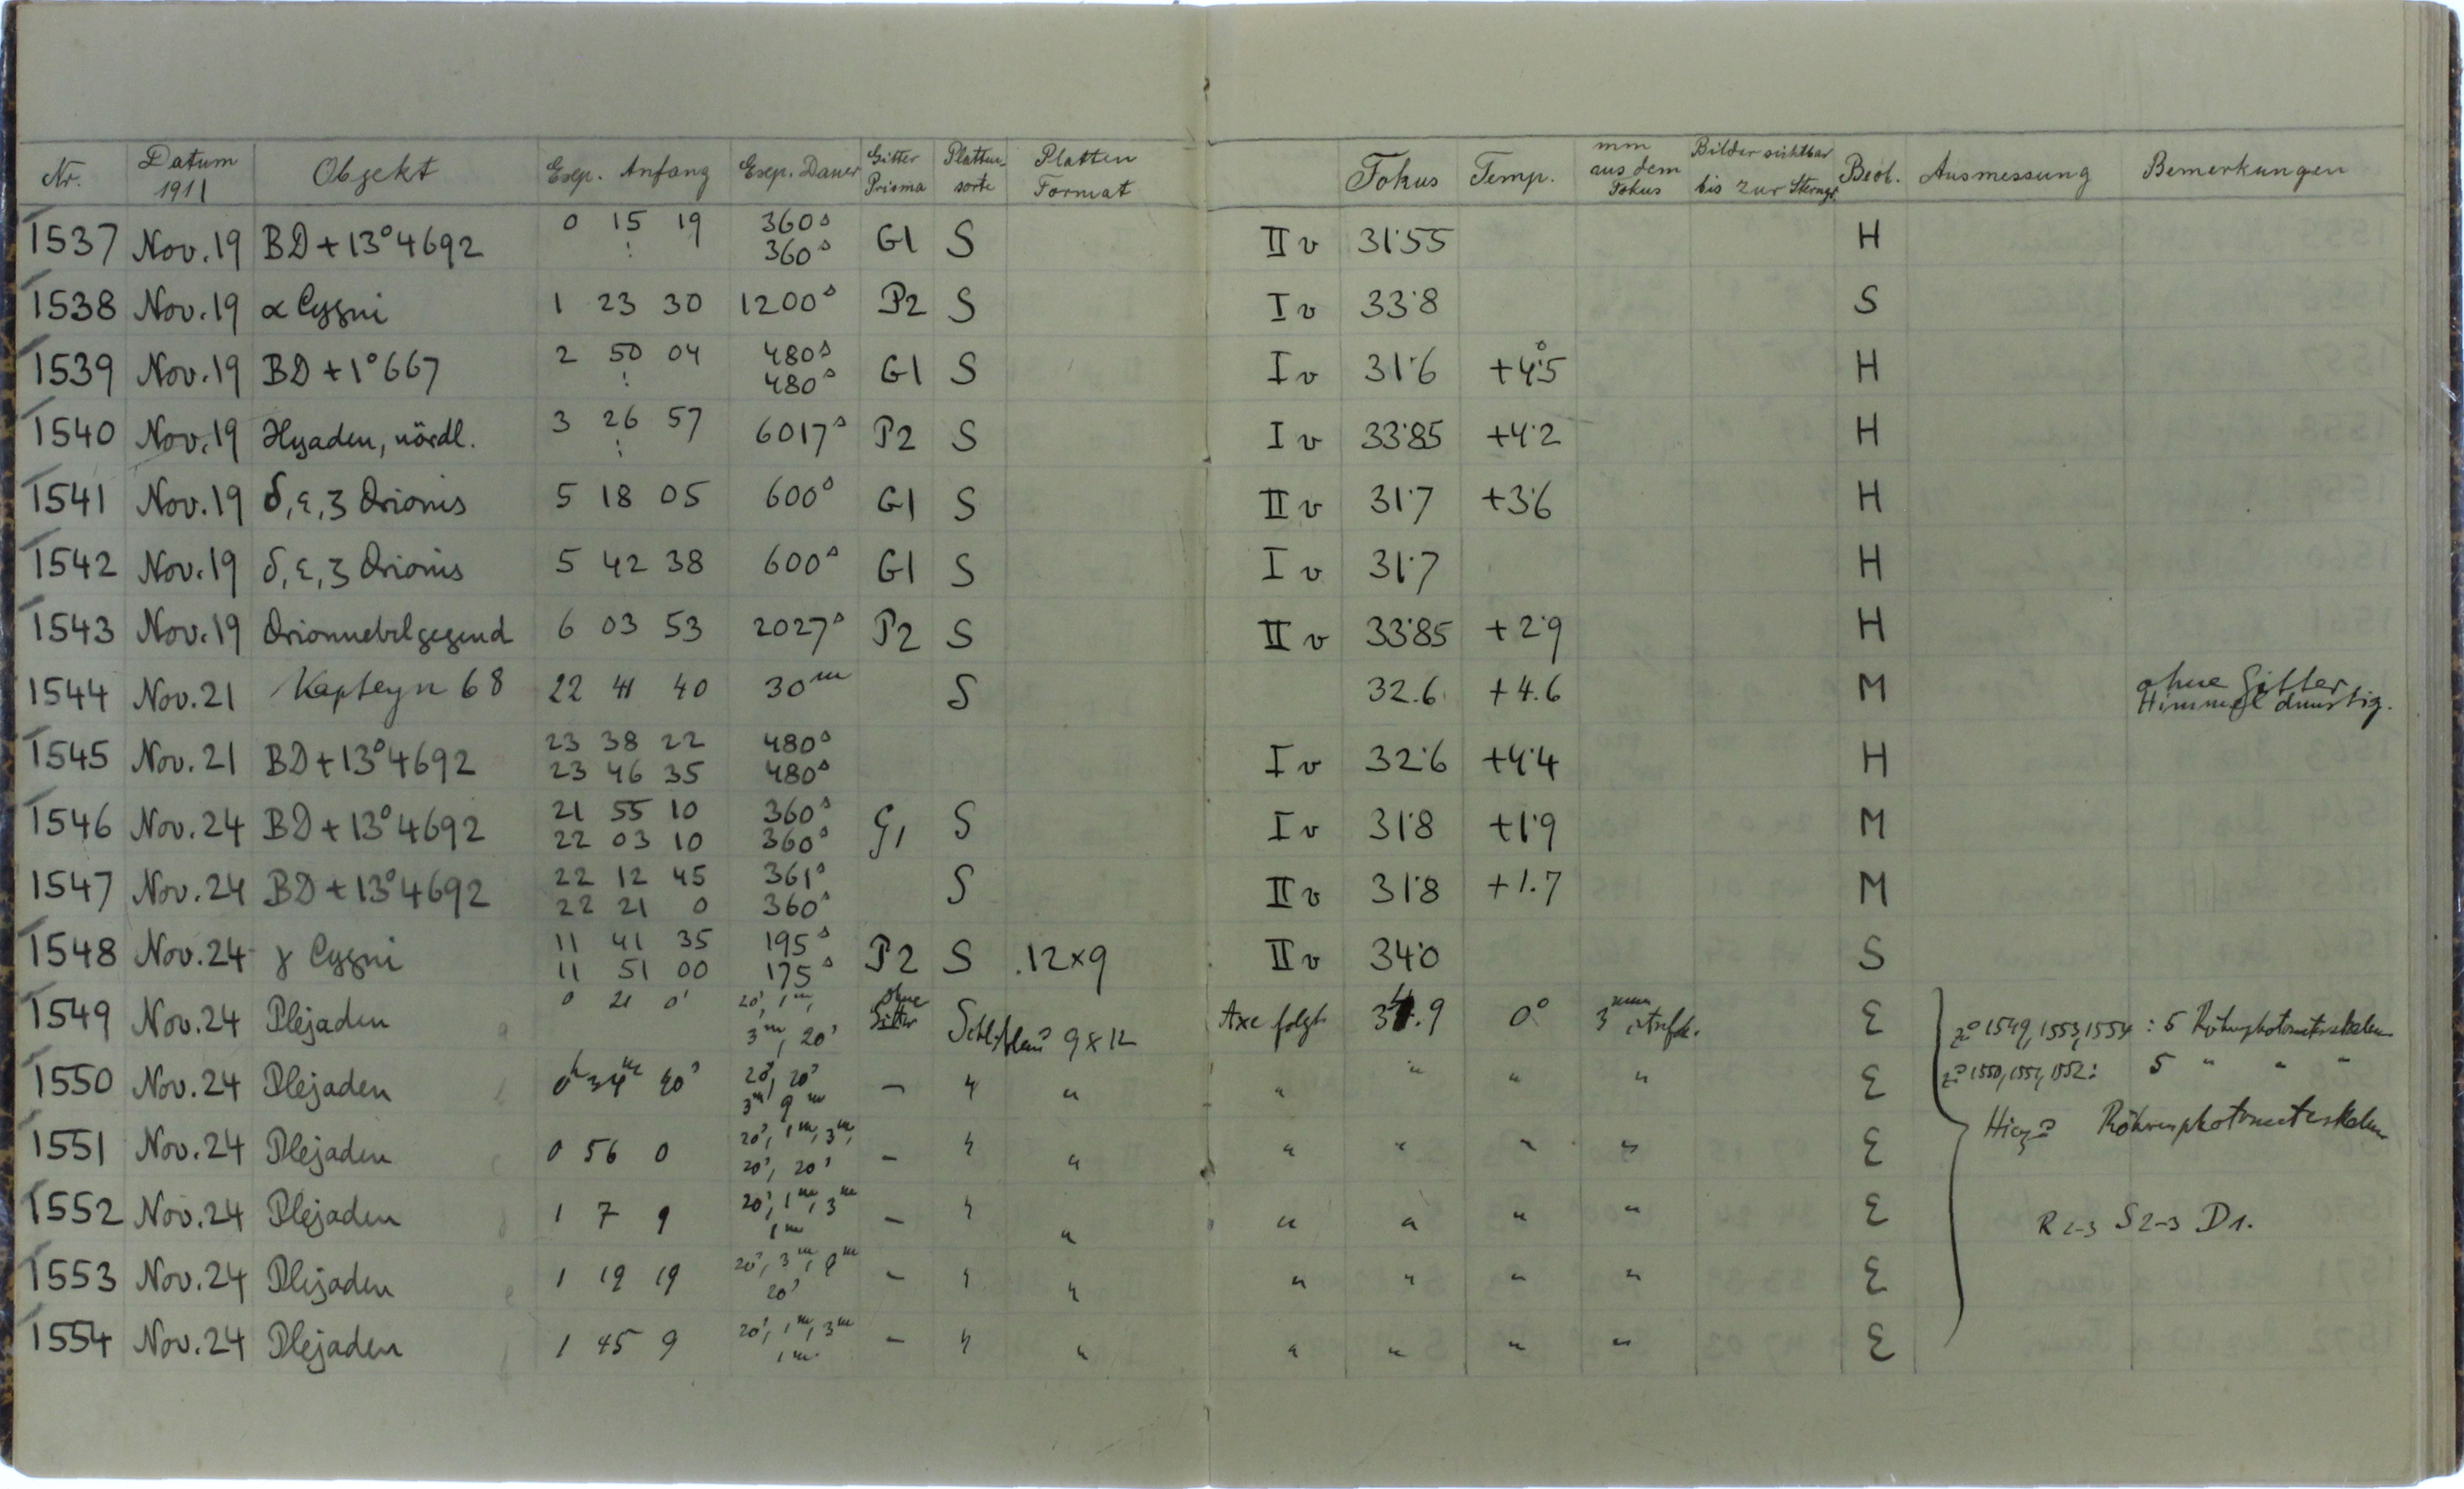 Nr. Datum 1911 Objekt Exp. Anfang Exp. Dauer Gitter Prisma Platten-sorte Platten Format Fokus Temp. mm aus dem Fokus Bilder sichtbar bis zur Sterngr. Beob. Ausmessung Bemerkungen
1537 Nov. 19 BD + 13° 4692 0 15 19 360s G1 S II v 31.55 H
: 360s
1538 Nov. 19 α Cygni 1 23 30 1200s P2 S I v 33.8 S
1539 Nov. 19 BD + 1° 667 2 50 04 480s G1 S I v 31.6 +4.5° H
: 480s
1540 Nov. 19 Hyaden, nördl. 3 26 57 6017s P2 S I v 33.85 +4.2 H
:
1541 Nov. 19 δ, ε, ζ Orionis 5 18 05 600s G1 S II v 31.7 +3.6 H
1542 Nov. 19 δ, ε, ζ Orionis 5 42 38 600s G1 S I v 31.7 H
1543 Nov. 19 Orionnebelgegend 6 03 53 2027s P2 S II v 33.85 +2.9 H
1544 Nov. 21 Kapteyn 68 22 41 40 30m S 32.6 +4.6 M ohne Gitter
Himmel dunstig.
1545 Nov. 21 BD + 13° 4692 23 38 22 480s I v 32.6 +4.4 H
23 46 35 480s
1546 Nov. 24 BD + 13° 4692 21 55 10 360s G1 S I v 31.8 +1.9 M
22 03 10 360s
1547 Nov. 24 BD + 13° 4692 22 12 45 361s S II v 31.8 +1.7 M
22 21 0 360s
1548 Nov. 24 γ Cygni 11 41 35 195s P2 S 12×9 II v 34.0 S
11 51 00 175s
1549 Nov. 24 Plejaden 0 21 0s 20s, 1m, ohne Gitter 9×12 Axe folgt 34.9 0° 3mm E 1549, 1553, 1554 : 5 Röhrenphotometerskalen
3m, 20s
1550 Nov. 24 Plejaden 0h 34m 20s, 20s — " " " " " " E 1550, 1551, 1552: 5 " " "
3m 9m
Röhrenphotometerskalen
1551 Nov. 24 Plejaden 0 56 0 20s, 1m, 3m, — " " " " " " E
20s, 20s
1552 Nov. 24 Plejaden 1 7 9 20s, 1m, 3m — " " " " " " E R 2-3 S 2-3 D 1.
1m
1553 Nov. 24 Plejaden 1 19 19 20s, 3m, 9m — " " " " " " E
20s
1554 Nov. 24 Plejaden 1 45 9 20s, 1m, 3m — " " " " " " E
1m